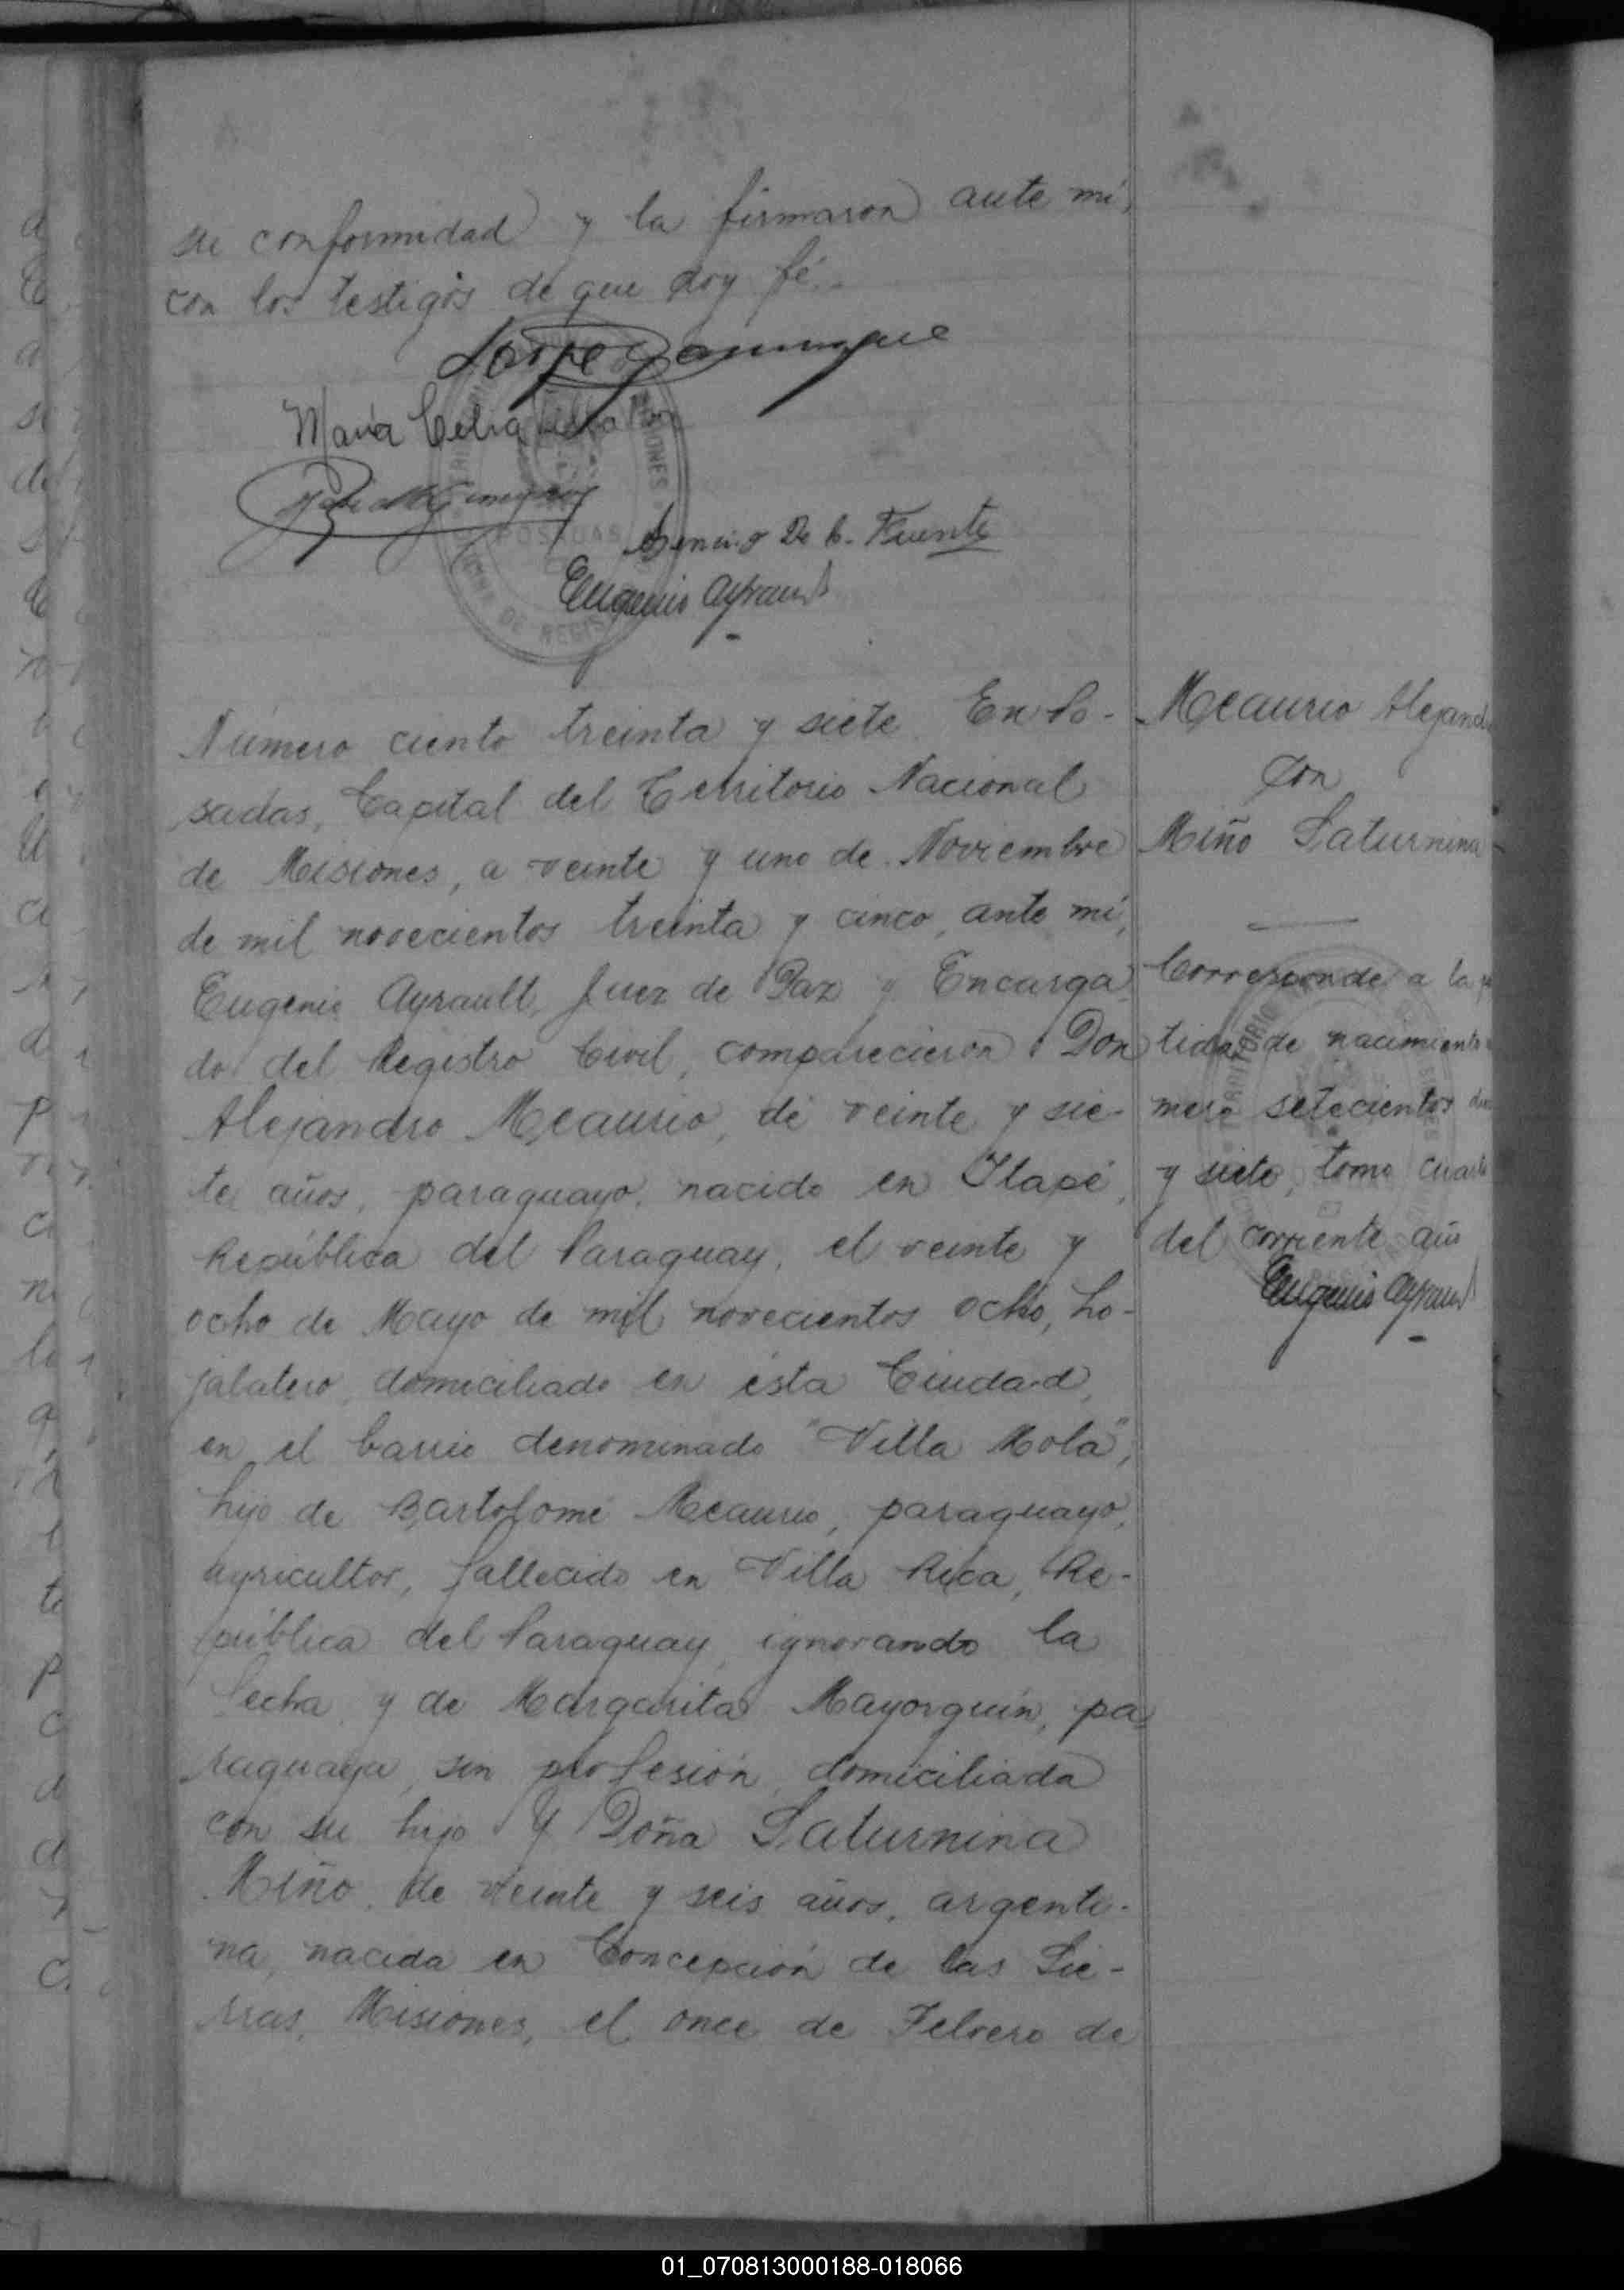 su conformidad y la firmaron ante mí,
con los testigos de que doy fé.
María Celia
De C. Fuente
Eugenio Ayrault
POSADAS
Número ciento treinta y siete En Po-
sadas, Capital del Territorio Nacional
de Misiones, a veinte y uno de Noviembre
de mil novecientos treinta y cinco, ante mí,
Eugenio Ayrault, Juez de Paz y Encarga
do del Registro Civil, comparecieron: Don
Alejandro Mcaurio, de veinte y sie-
te años, paraguayo, nacido en Itapé,
República del Paraguay, el veinte y
ocho de Mayo de mil novecientos ocho, ho-
jalatero, domiciliado en ésta Ciudad,
en el barrio denominado "Villa Mola",
hijo de Bartolomé Mcaurio, paraguayo,
agricultor, fallecido en Villa Rica, Re-
pública del Paraguay, ignorando la
fecha y de Margarita Mayorquin, pa
raguaya, sin profesión, domiciliada
con su hijo Y Doña Saturnina
Miño, de veinte y seis años, argenti-
na, nacida en Concepción de las Sie-
rras, Misiones, el once de Febrero de
Mcaurio Alejand
con
Miño Saturnina
Corresponde a la
tida de nacimiento
mero setecientos
y siete, tomo cuarto
del corriente año
Eugenio Ayrault
01_070813000188-018066